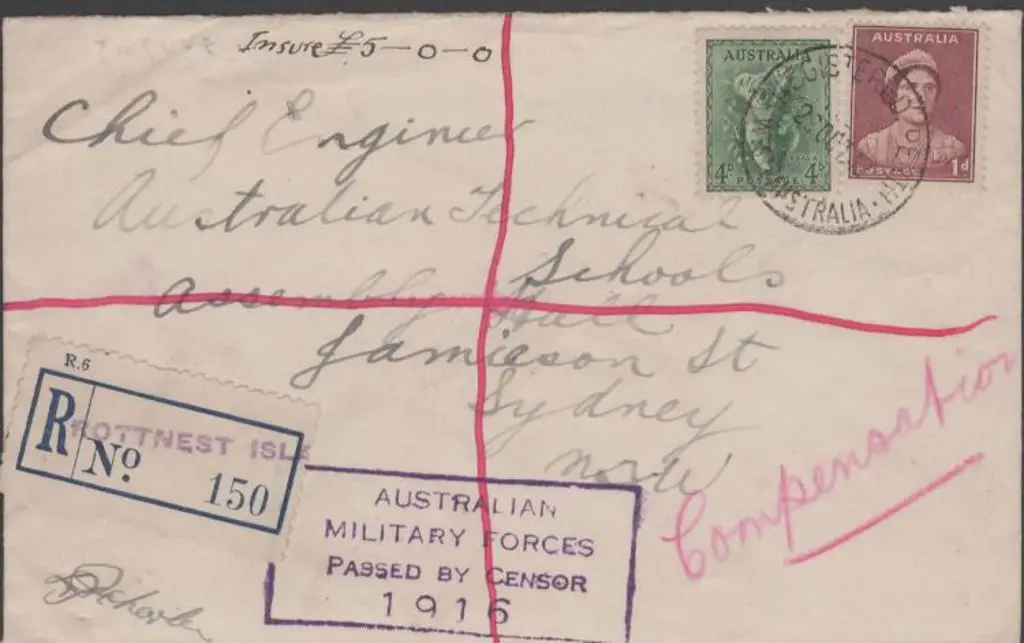 Insure £5-0-0
Chief Engineer
Australian Technical
Schools
Assembly Hall
Jamieson St
Sydney
North
Compensation
AUSTRALIA
4D 4D
KOALA
POSTAGE
AUSTRALIA
POSTAGE 1d
REGISTERED
AUSTRALIA
R.6
R No 150
ROTTNEST ISLE
AUSTRALIAN
MILITARY FORCES
PASSED BY CENSOR
1916